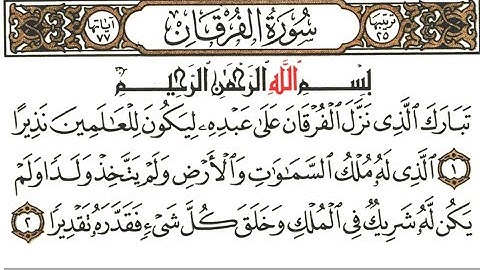 ترتيبها ٢٥ سُورَةُ الْفُرْقَانِ آياتها ٧٧
بِسْمِ اللَّهِ الرَّحْمَٰنِ الرَّحِيمِ
تَبَارَكَ الَّذِى نَزَّلَ الْفُرْقَانَ عَلَىٰ عَبْدِهِۦ لِيَكُونَ لِلْعَالَمِينَ نَذِيرًا
١ الَّذِى لَهُۥ مُلْكُ السَّمَاوَاتِ وَالْأَرْضِ وَلَمْ يَتَّخِذْ وَلَدًا وَلَمْ
يَكُن لَّهُۥ شَرِيكٌ فِى الْمُلْكِ وَخَلَقَ كُلَّ شَىْءٍ فَقَدَّرَهُۥ تَقْدِيرًا ٢